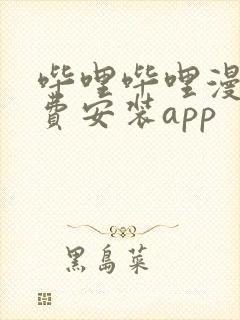 哔哩哔哩漫
费安装app
黑岛菜